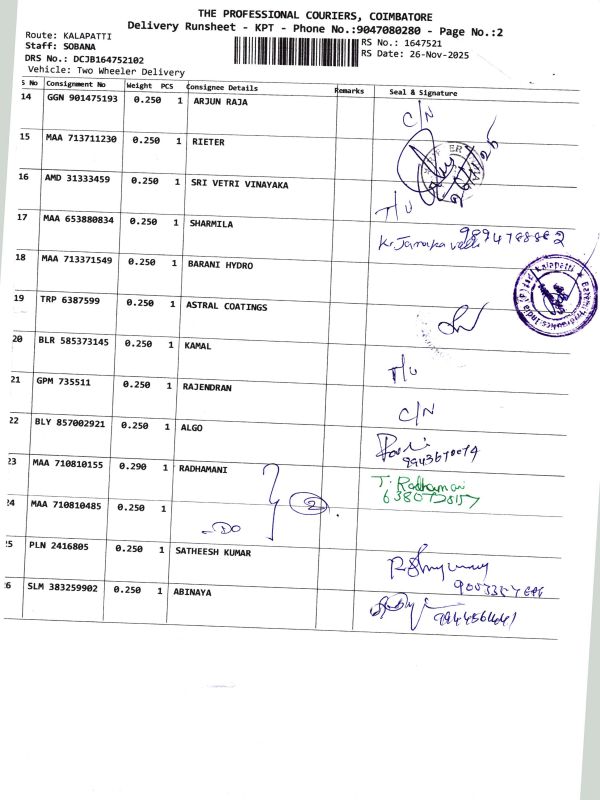 THE PROFESSIONAL COURIERS, COIMBATORE
Delivery Runsheet - KPT - Phone No.:9047080280 - Page No.:2
Route: KALAPATTI
RS No.: 1647521
Staff: SOBANA
RS Date: 26-Nov-2025
DRS No.: DCJB164752102
Vehicle: Two Wheeler Delivery
S No Consignment No Weight PCS Consignee Details Remarks Seal & Signature
14 GGN 901475193 0.250 1 ARJUN RAJA C/N
15 MAA 713711230 0.250 1 RIETER
16 AMD 31333459 0.250 1 SRI VETRI VINAYAKA T/U
17 MAA 653880834 0.250 1 SHARMILA
18 MAA 713371549 0.250 1 BARANI HYDRO
19 TRP 6387599 0.250 1 ASTRAL COATINGS
20 BLR 585373145 0.250 1 KAMAL T/U
21 GPM 735511 0.250 1 RAJENDRAN C/N
22 BLY 857002921 0.250 1 ALGO
23 MAA 710810155 0.290 1 RADHAMANI T. Radhamani
24 MAA 710810485 0.250 1 -Do 2
25 PLN 2416805 0.250 1 SATHEESH KUMAR
26 SLM 383259902 0.250 1 ABINAYA